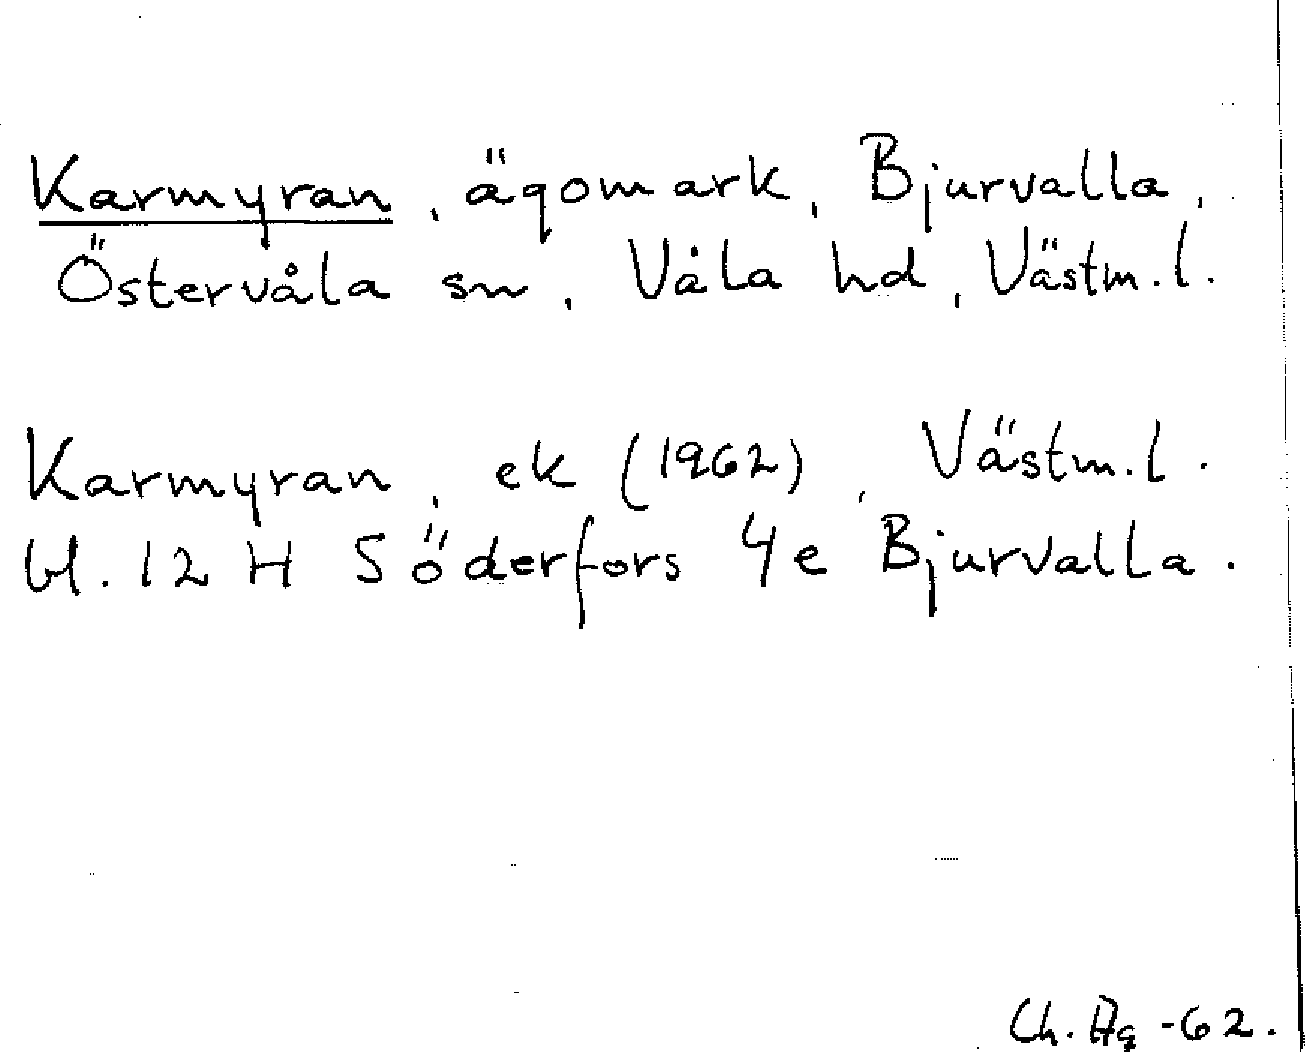 Karmyran, ägomark, Bjurvalla,
Östervåla sn, Våla hd, Västm.l.
Karmyran, ek (1962), Västm.l.
bl. 12 H Söderfors 4e Bjurvalla.
Ch. Ag -62.